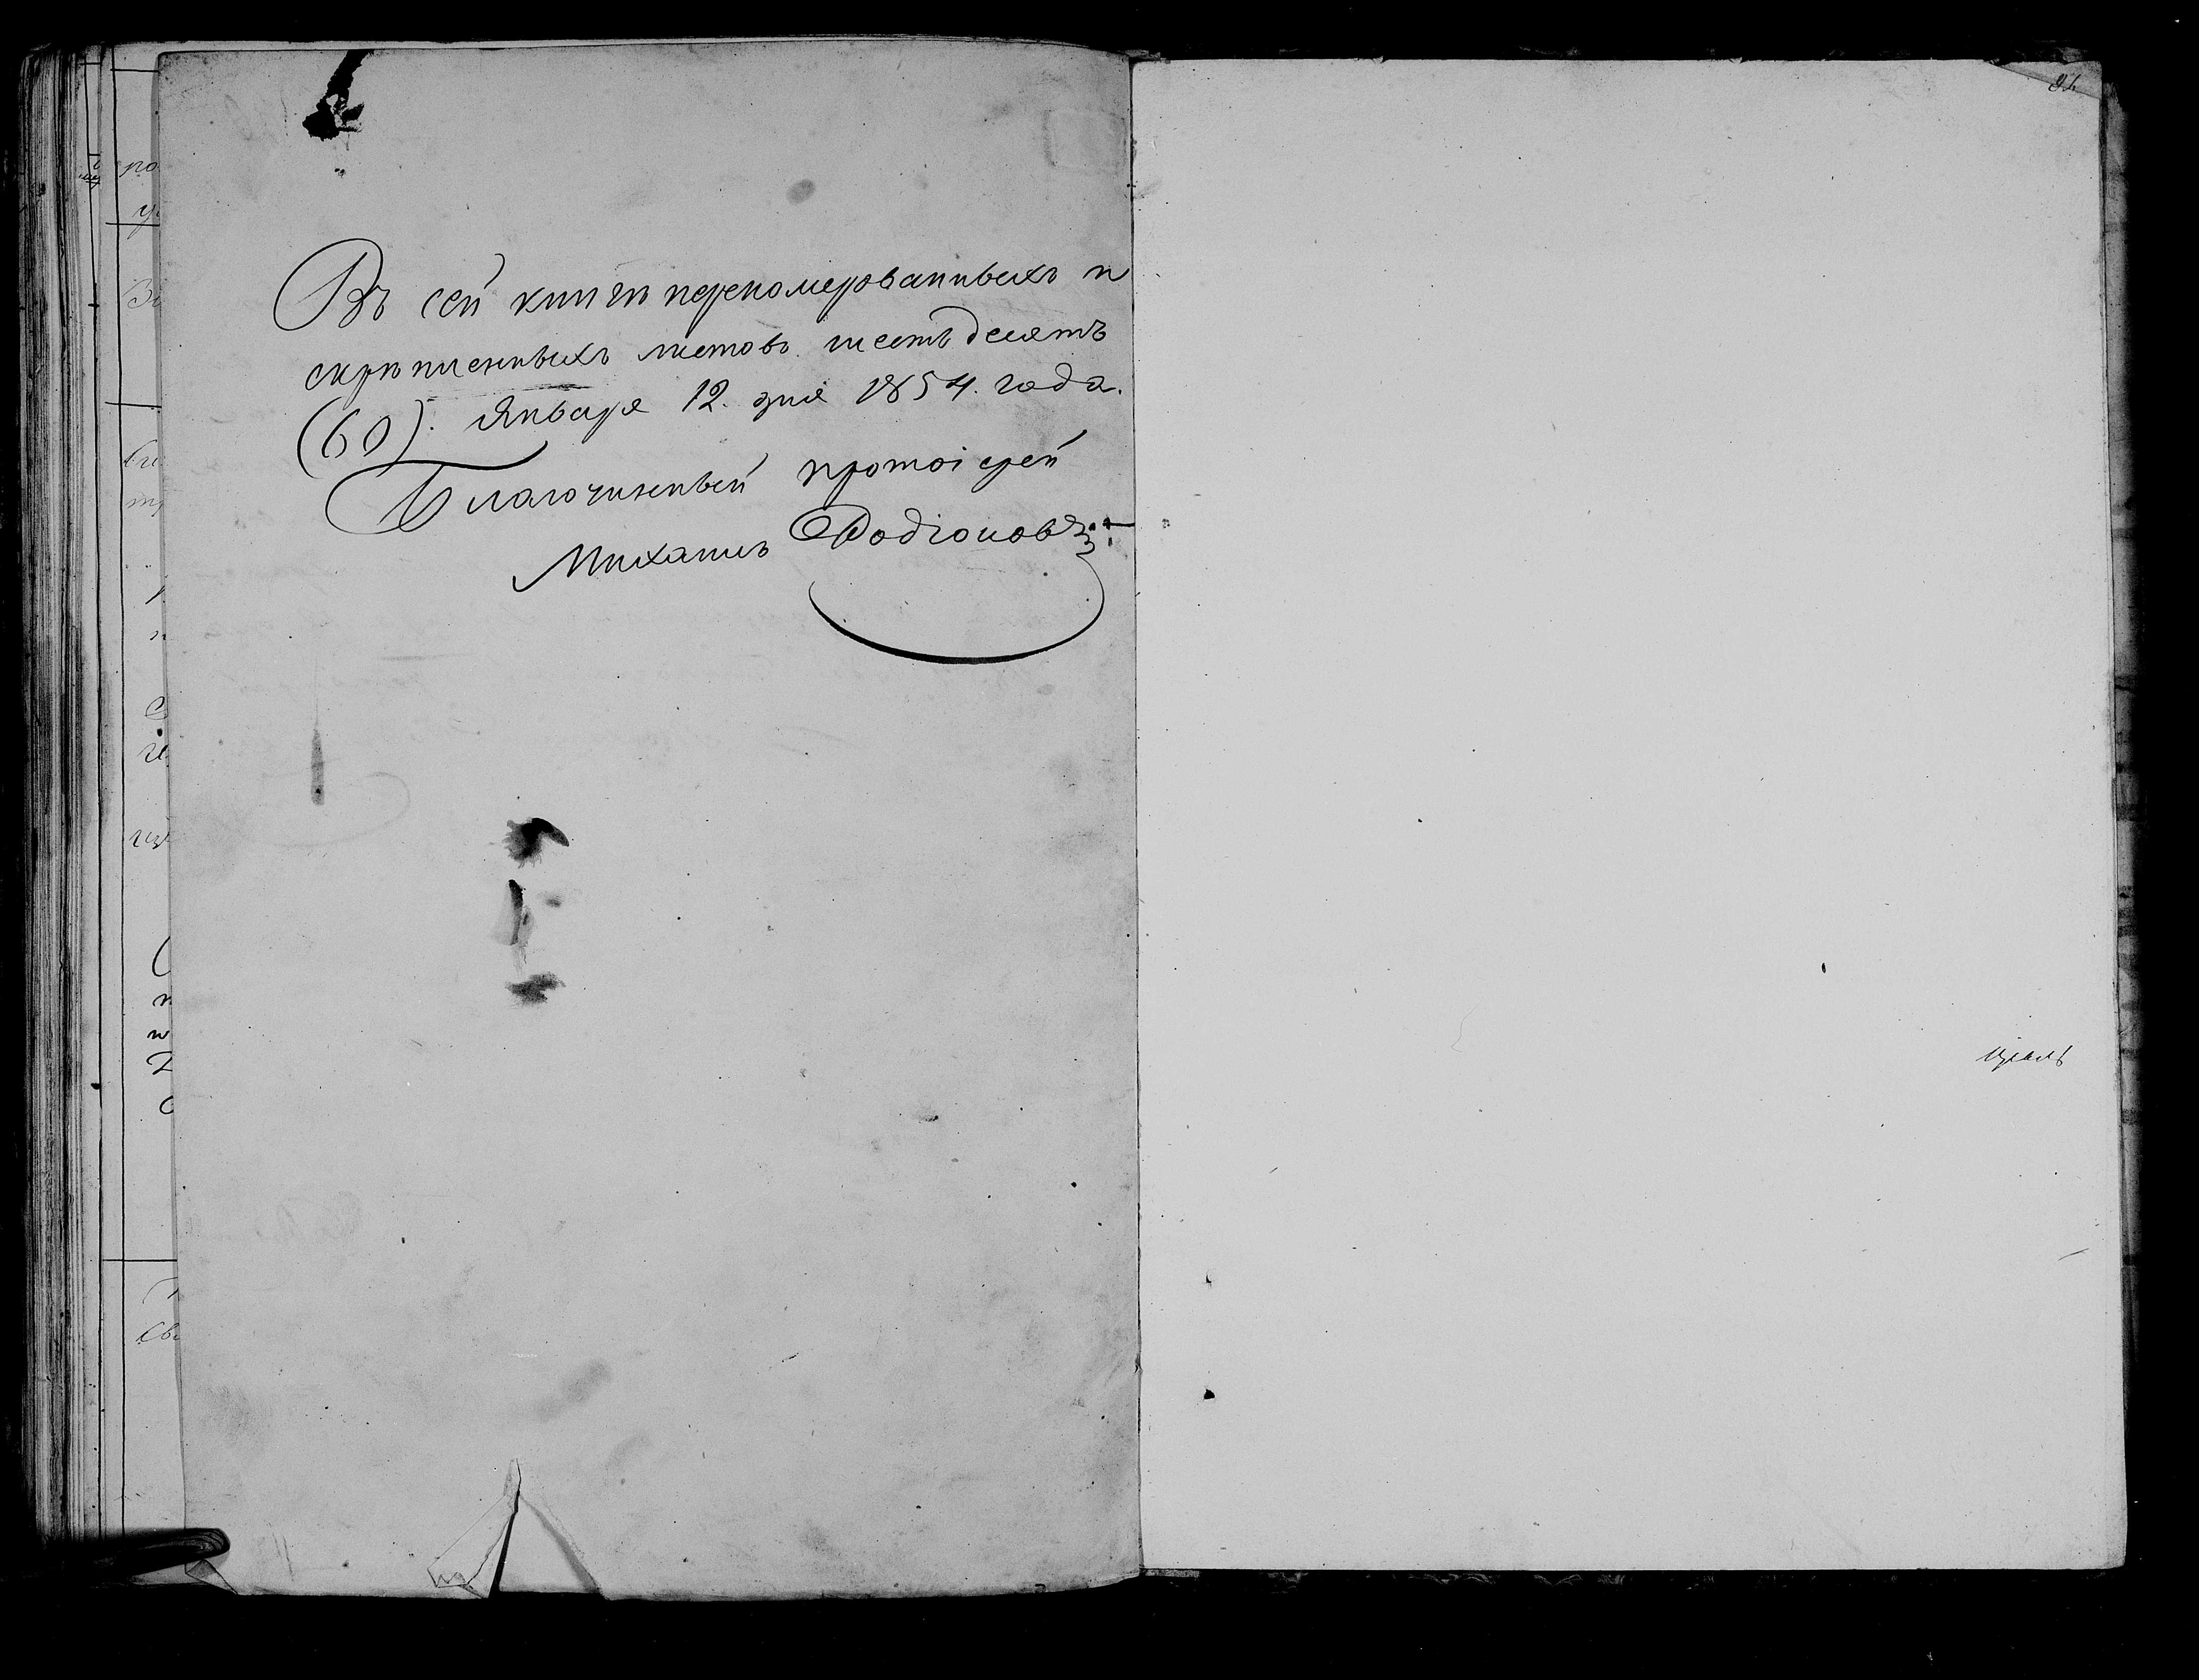 Въ сей книгѣ переномерованныхъ и
скрѣпленныхъ листовъ шестьдесятъ
(60). Января 12. дня 1854. года.
Благочинный протоіерей
Михаилъ Родіоновъ